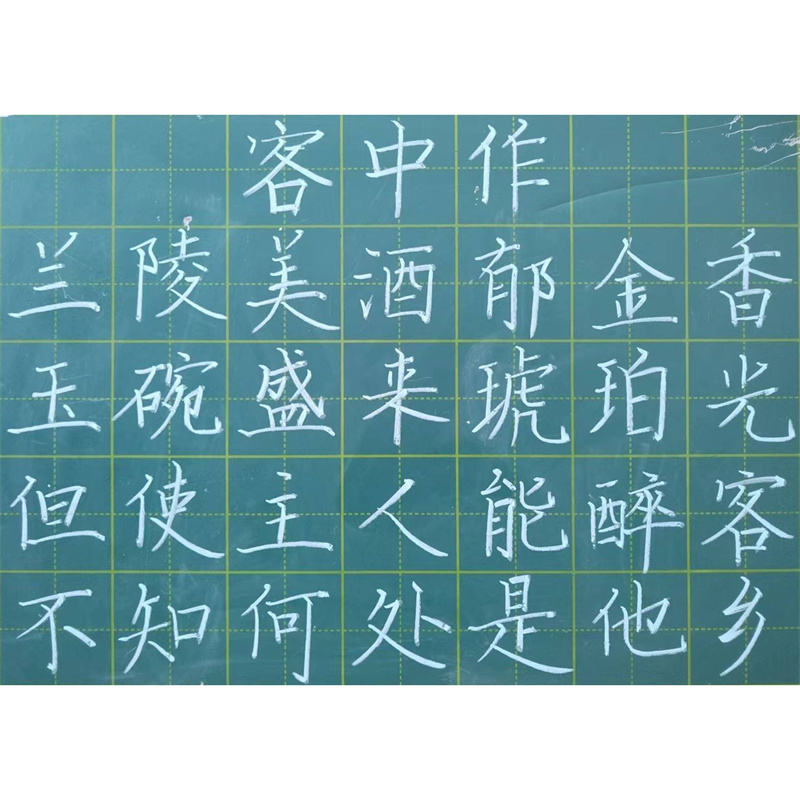 客中作
兰陵美酒郁金香
玉碗盛来琥珀光
但使主人能醉客
不知何处是他乡